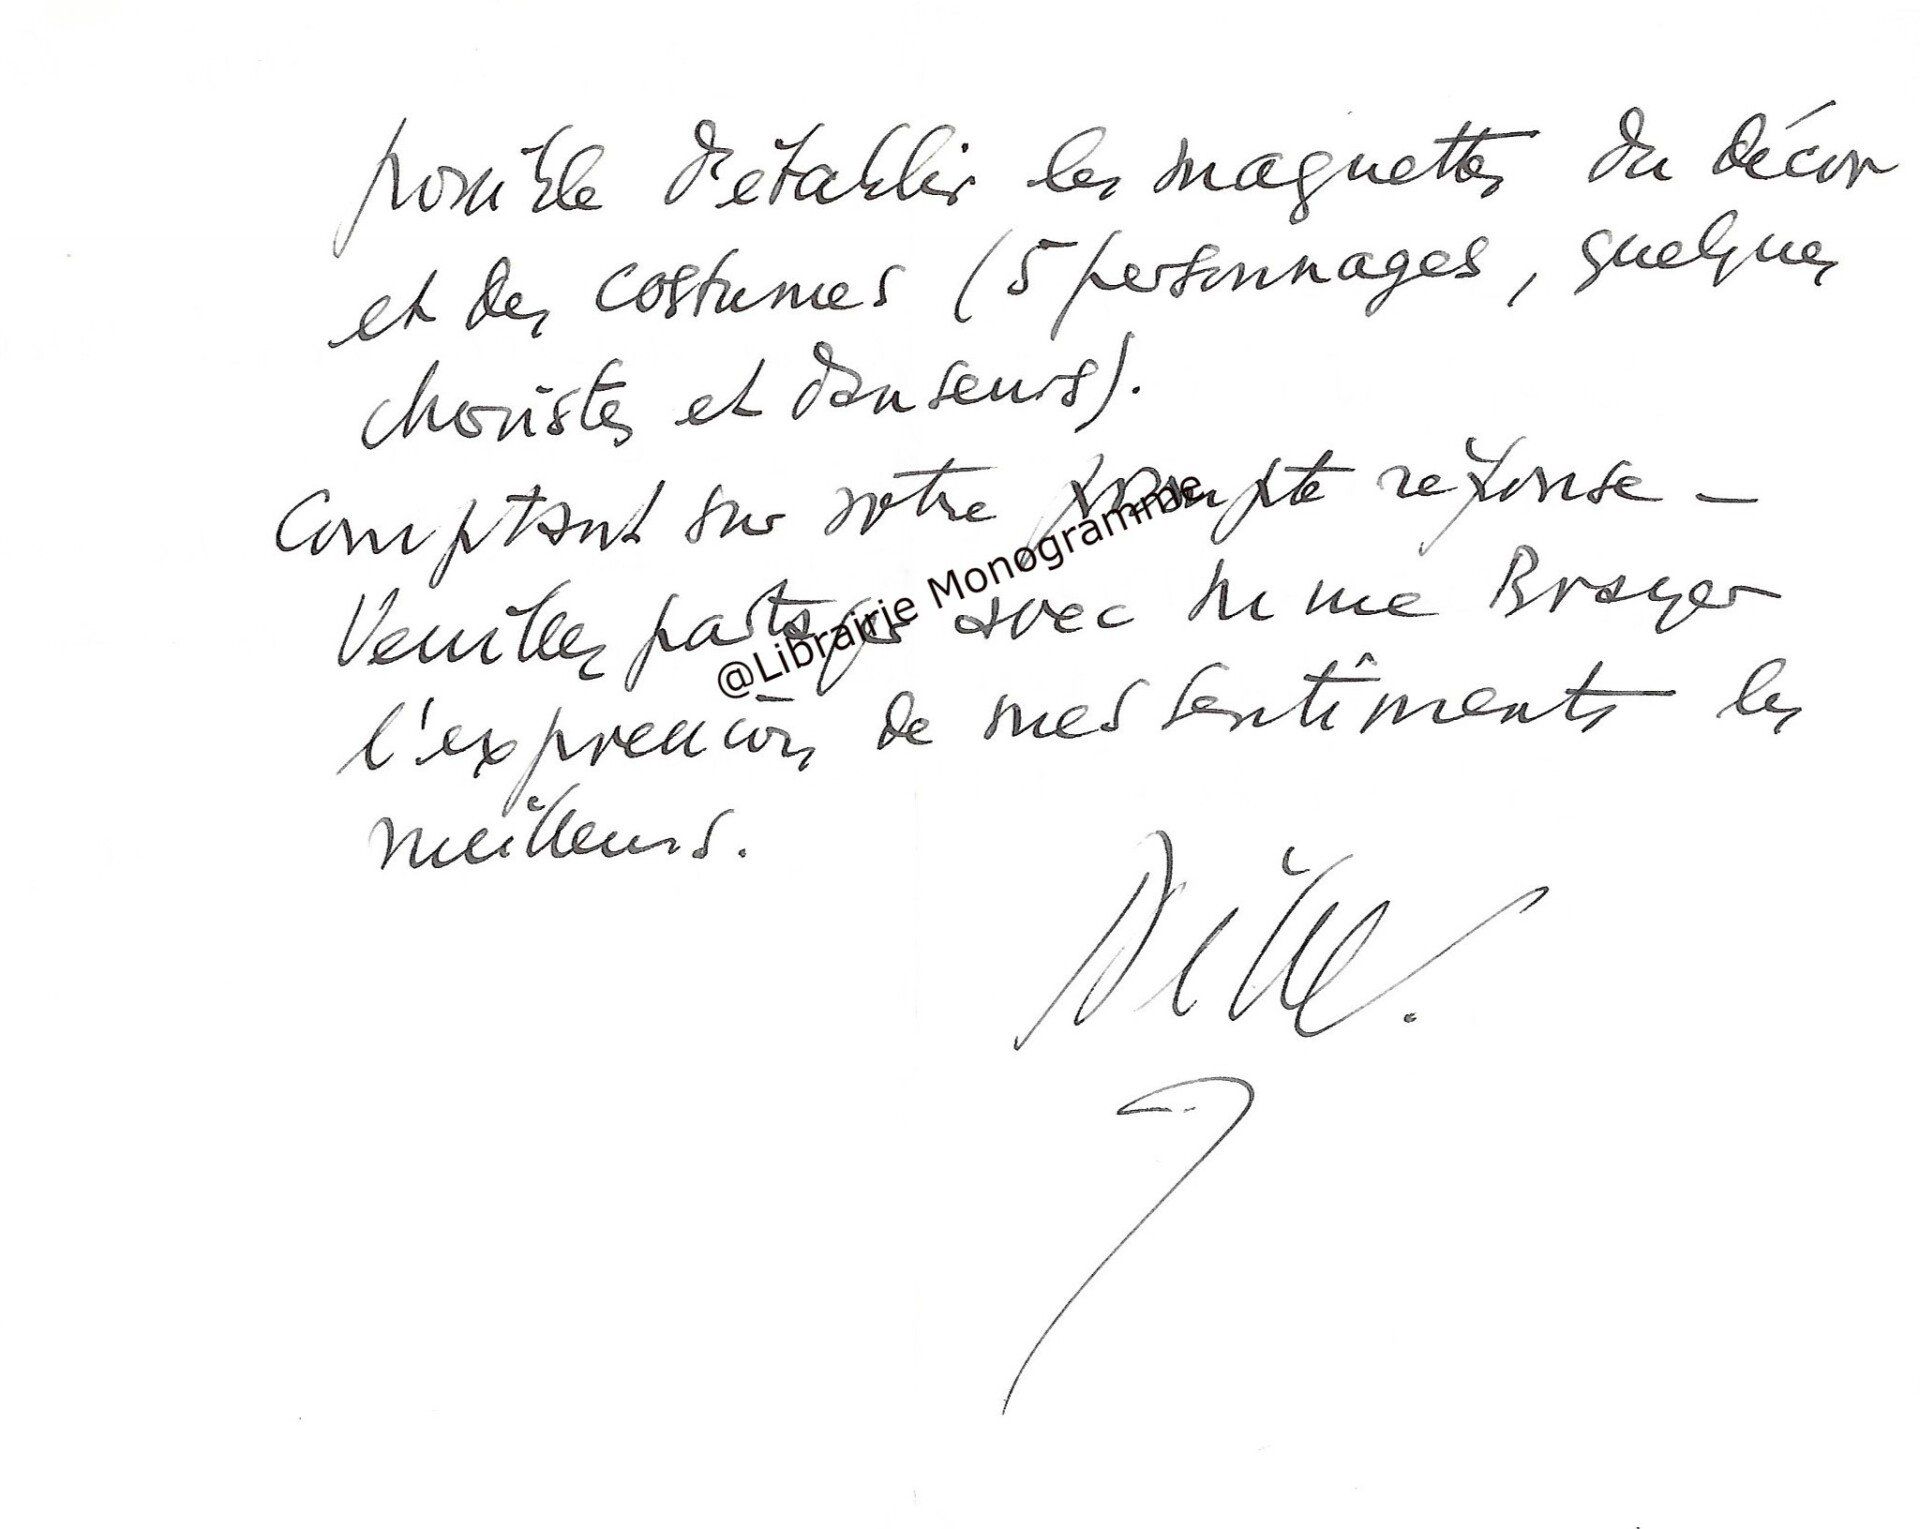 possible d'établir les maquettes du décor
et des costumes (5 personnages, quelques
choristes et danseurs).
Comptant sur votre prompte réponse –
Veuillez partager avec Mme Brayer
l'expression de mes sentiments les
meilleurs.
@Librairie Monogramme